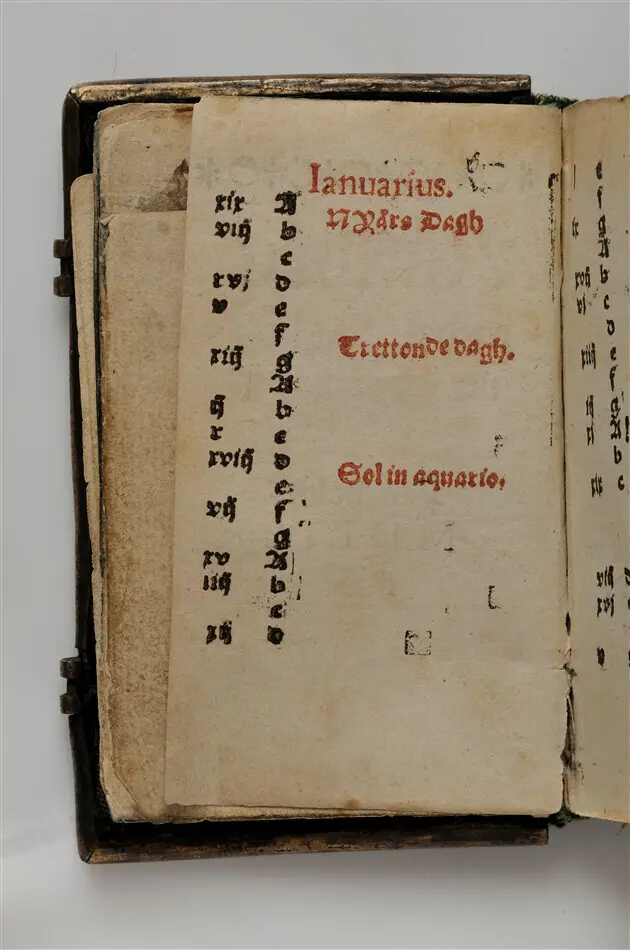 Ianuarius.
xix A
viij b NYårs Dagh
c
xvj d
v e
f
xiij g Trettonde dagh.
A
ij b
x c
xviij d
e Sol in aquario.
vij f
g
xv A
iiij b
c
xij d
e
f
g
A
b
vj c
d
e
f
g
A
b
c
viij
xvj